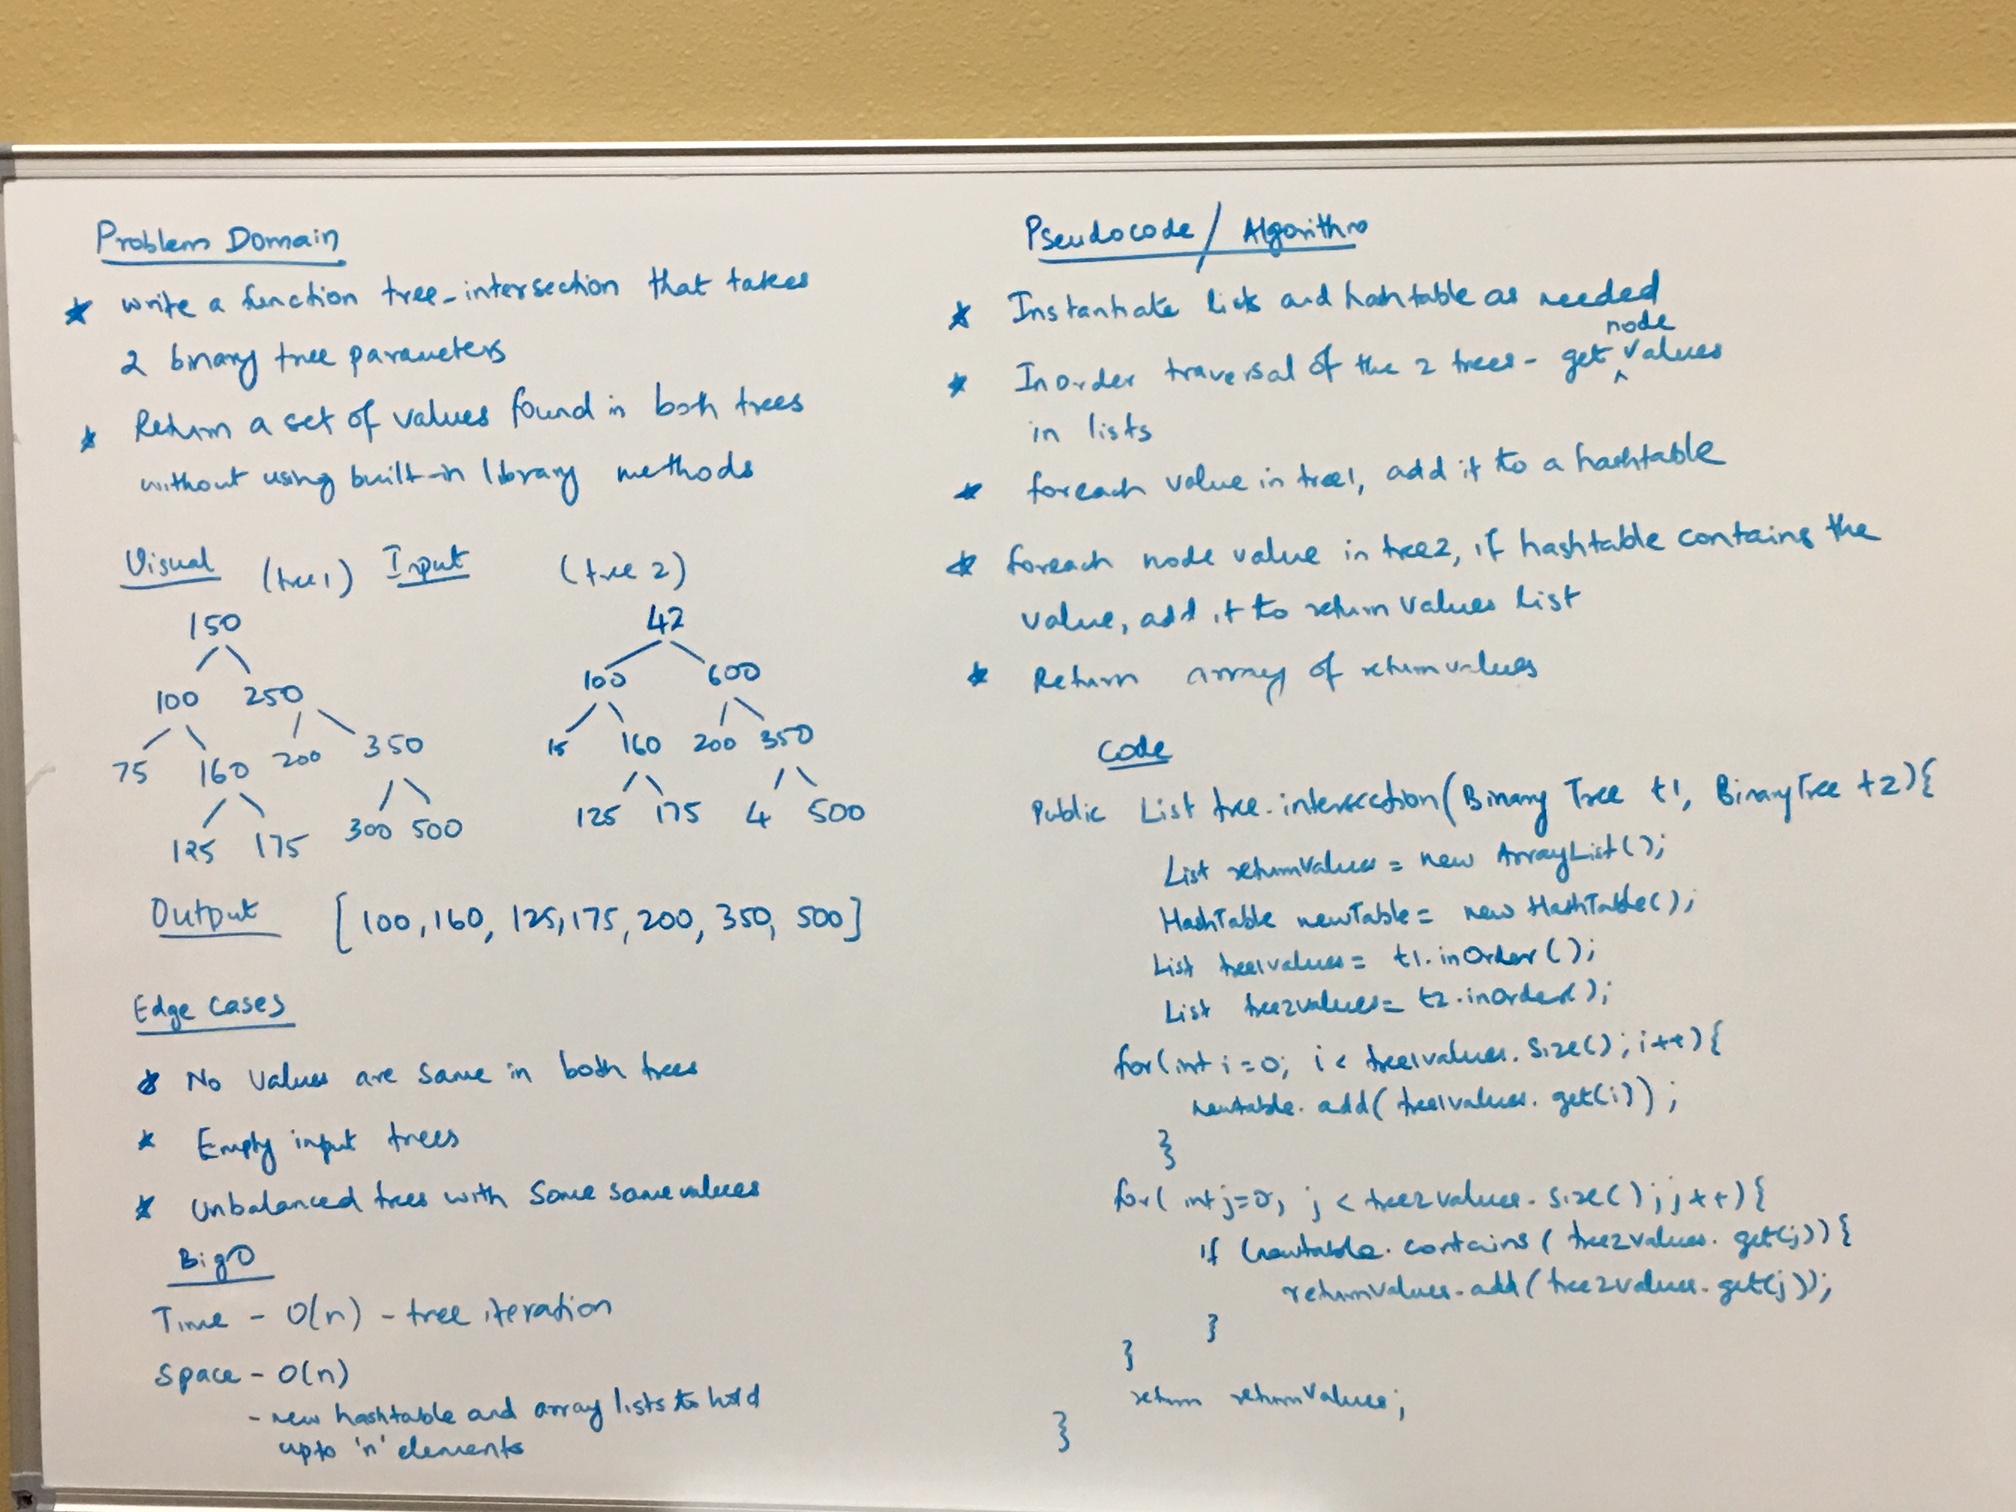 Problem Domain
* write a function tree_intersection that takes
2 binary tree parameters
* Return a set of values found in both trees
without using built-in library methods
Visual (tree1) Input (tree 2)
150
100 250
75 160 200 350
125 175 300 500
42
100 600
15 160 200 350
125 175 4 500
Output [100, 160, 125, 175, 200, 350, 500]
Edge Cases
* No values are same in both trees
* Empty input trees
* Unbalanced trees with some same values
Big O
Time - O(n) - tree iteration
Space - O(n)
- new hashtable and array lists to hold
upto 'n' elements
Pseudocode / Algorithm
* Instantiate lists and hashtable as needed
* Inorder traversal of the 2 trees - get node values
in lists
* foreach value in tree1, add it to a hashtable
* foreach node value in tree2, if hashtable contains the
value, add it to return values list
* Return array of returnvalues
Code
Public List tree-intersection(Binary Tree t1, BinaryTree t2){
List returnValues = new ArrayList();
HashTable newTable = new HashTable();
List tree1values = t1.inOrder();
List tree2values = t2.inOrder();
for(int i=0; i< tree1values.size(); i++){
newtable.add(tree1values.get(i));
}
for(int j=0; j < tree2values.size(); j++){
if (newtable.contains(tree2values.get(j)){
returnvalues.add(tree2values.get(j));
}
}
return returnValues;
}